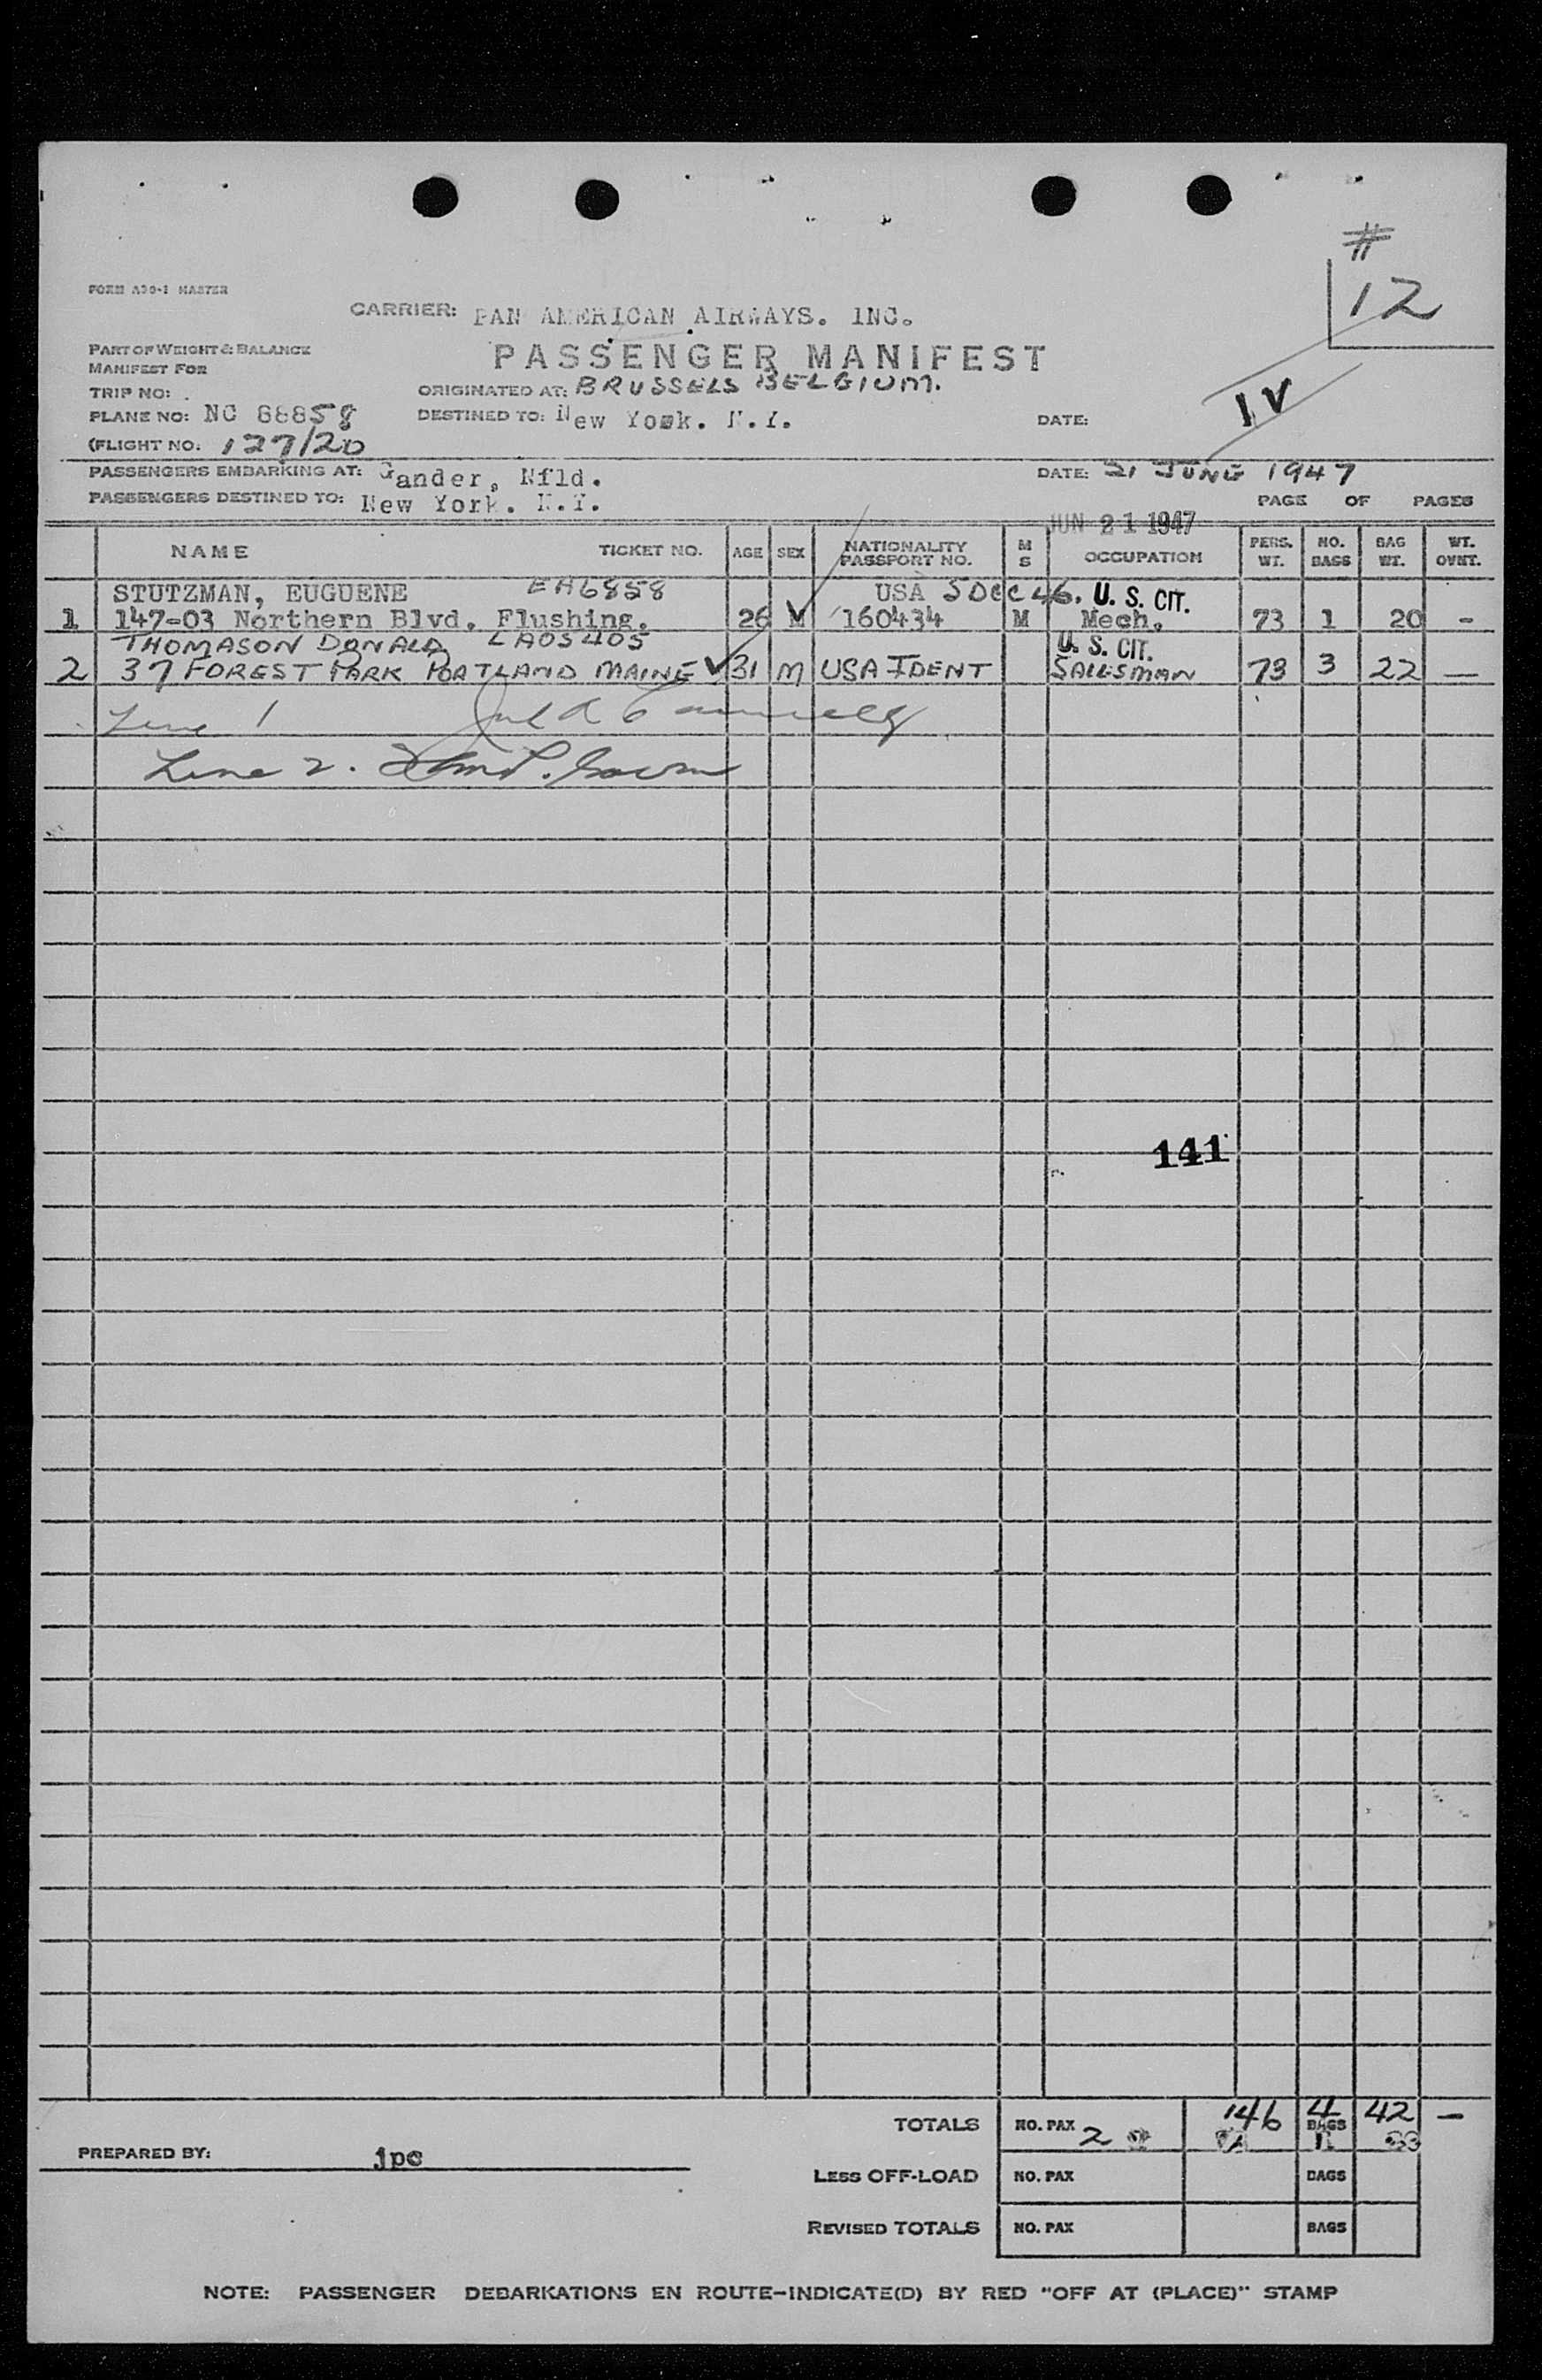 #
12
FORM A30-1 MASTER
CARRIER: PAN AMERICAN AIRWAYS. INC.
PART OF WEIGHT & BALANCE
MANIFEST FOR
PASSENGER MANIFEST
TRIP NO:
ORIGINATED AT: BRUSSELS BELGIUM.
IV
PLANE NO: NC 88858
DESTINED TO: New York. N.Y.
DATE:
(FLIGHT NO: 127/20
PASSENGERS EMBARKING AT: Gander, Nfld.
DATE: 21 JUNE 1947
PASSENGERS DESTINED TO: New York. N.Y.
PAGE OF PAGES
JUN 21 1947
NAME TICKET NO. AGE SEX NATIONALITY PASSPORT NO. M S OCCUPATION PERS. WT. NO. BAGS BAG WT. WT. OVNT.
STUTZMAN, EUGUENE EA6858 USA 5 DEC 46. U. S. CIT.
1 147-03 Northern Blvd. Flushing. 26 M 160434 M Mech. 73 1 20 -
THOMASON DONALD LA05405 U. S. CIT.
2 37 FOREST PARK PORTLAND MAINE 31 M USA IDENT SALESMAN 73 3 22 —
Line 1
Line 2.
141
TOTALS NO. PAX 2 146 4 BAGS 42 —
PREPARED BY: jpc
LESS OFF-LOAD NO. PAX BAGS
REVISED TOTALS NO. PAX BAGS
NOTE: PASSENGER DEBARKATIONS EN ROUTE-INDICATE(D) BY RED "OFF AT (PLACE)" STAMP